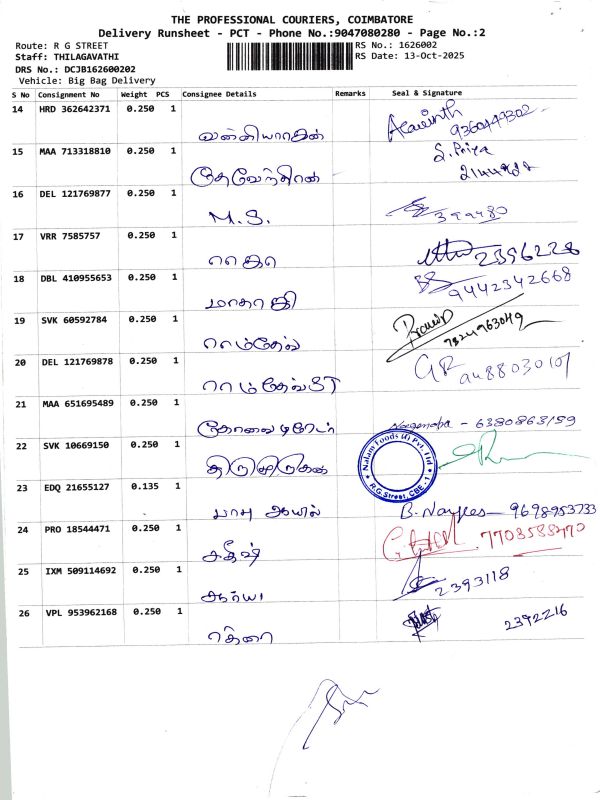 THE PROFESSIONAL COURIERS, COIMBATORE
Delivery Runsheet - PCT - Phone No.:9047080280 - Page No.:2
Route: R G STREET RS No.: 1626002
Staff: THILAGAVATHI RS Date: 13-Oct-2025
DRS No.: DCJB162600202
Vehicle: Big Bag Delivery
S No Consignment No Weight PCS Consignee Details Remarks Seal & Signature
14 HRD 362642371 0.250 1
15 MAA 713318810 0.250 1 S. Priya
16 DEL 121769877 0.250 1 M.S. 399480
17 VRR 7585757 0.250 1 2396228
18 DBL 410955653 0.250 1 மாதாஜி 9442342668
19 SVK 60592784 0.250 1 ராம்தேவ் 7824963049
20 DEL 121769878 0.250 1 ராம்தேவ் ST GR
21 MAA 651695489 0.250 1 கோவை டிரேடர்
22 SVK 10669150 0.250 1 Nalam Foods (I) Pvt. Ltd R.G.Street, CBE - 1
23 EDQ 21655127 0.135 1 பாபு ஆயில் 9698953733
24 PRO 18544471 0.250 1 சதீஷ்
25 IXM 509114692 0.250 1 ஆர்யா 2393118
26 VPL 953962168 0.250 1 2392216